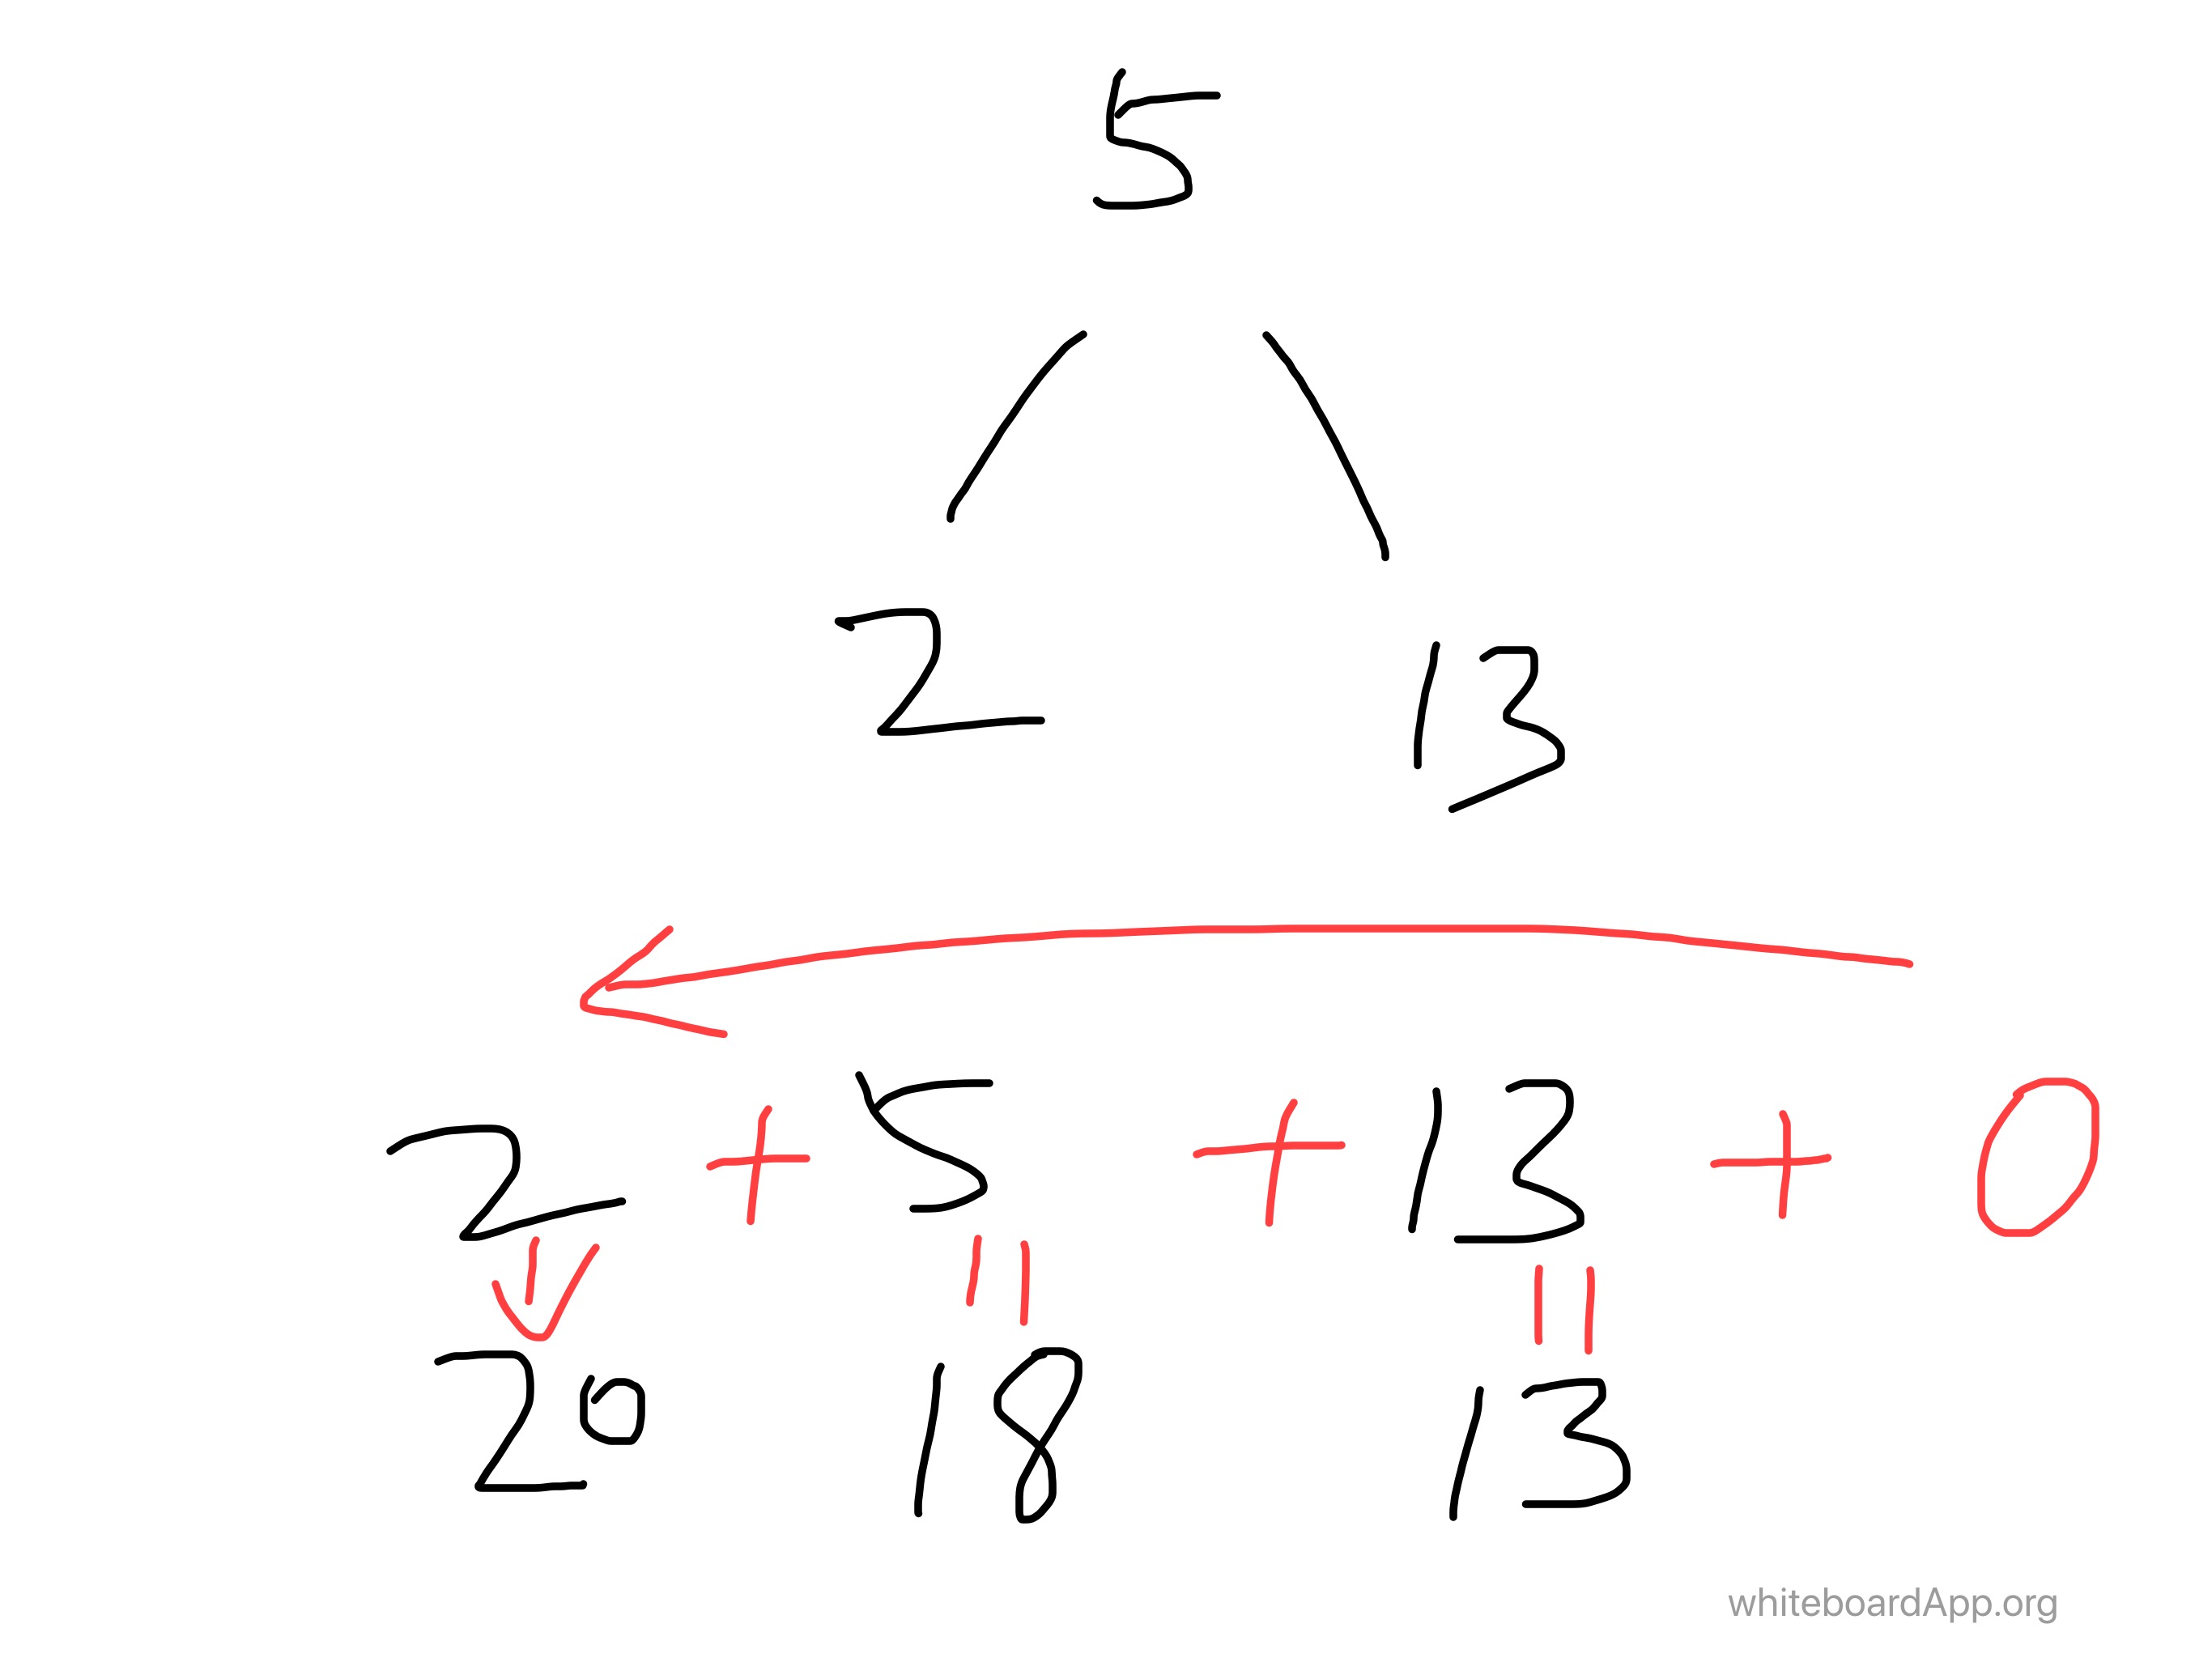 5
2 13
2 + 5 + 13 + 0
20 18 13
whiteboardApp.org